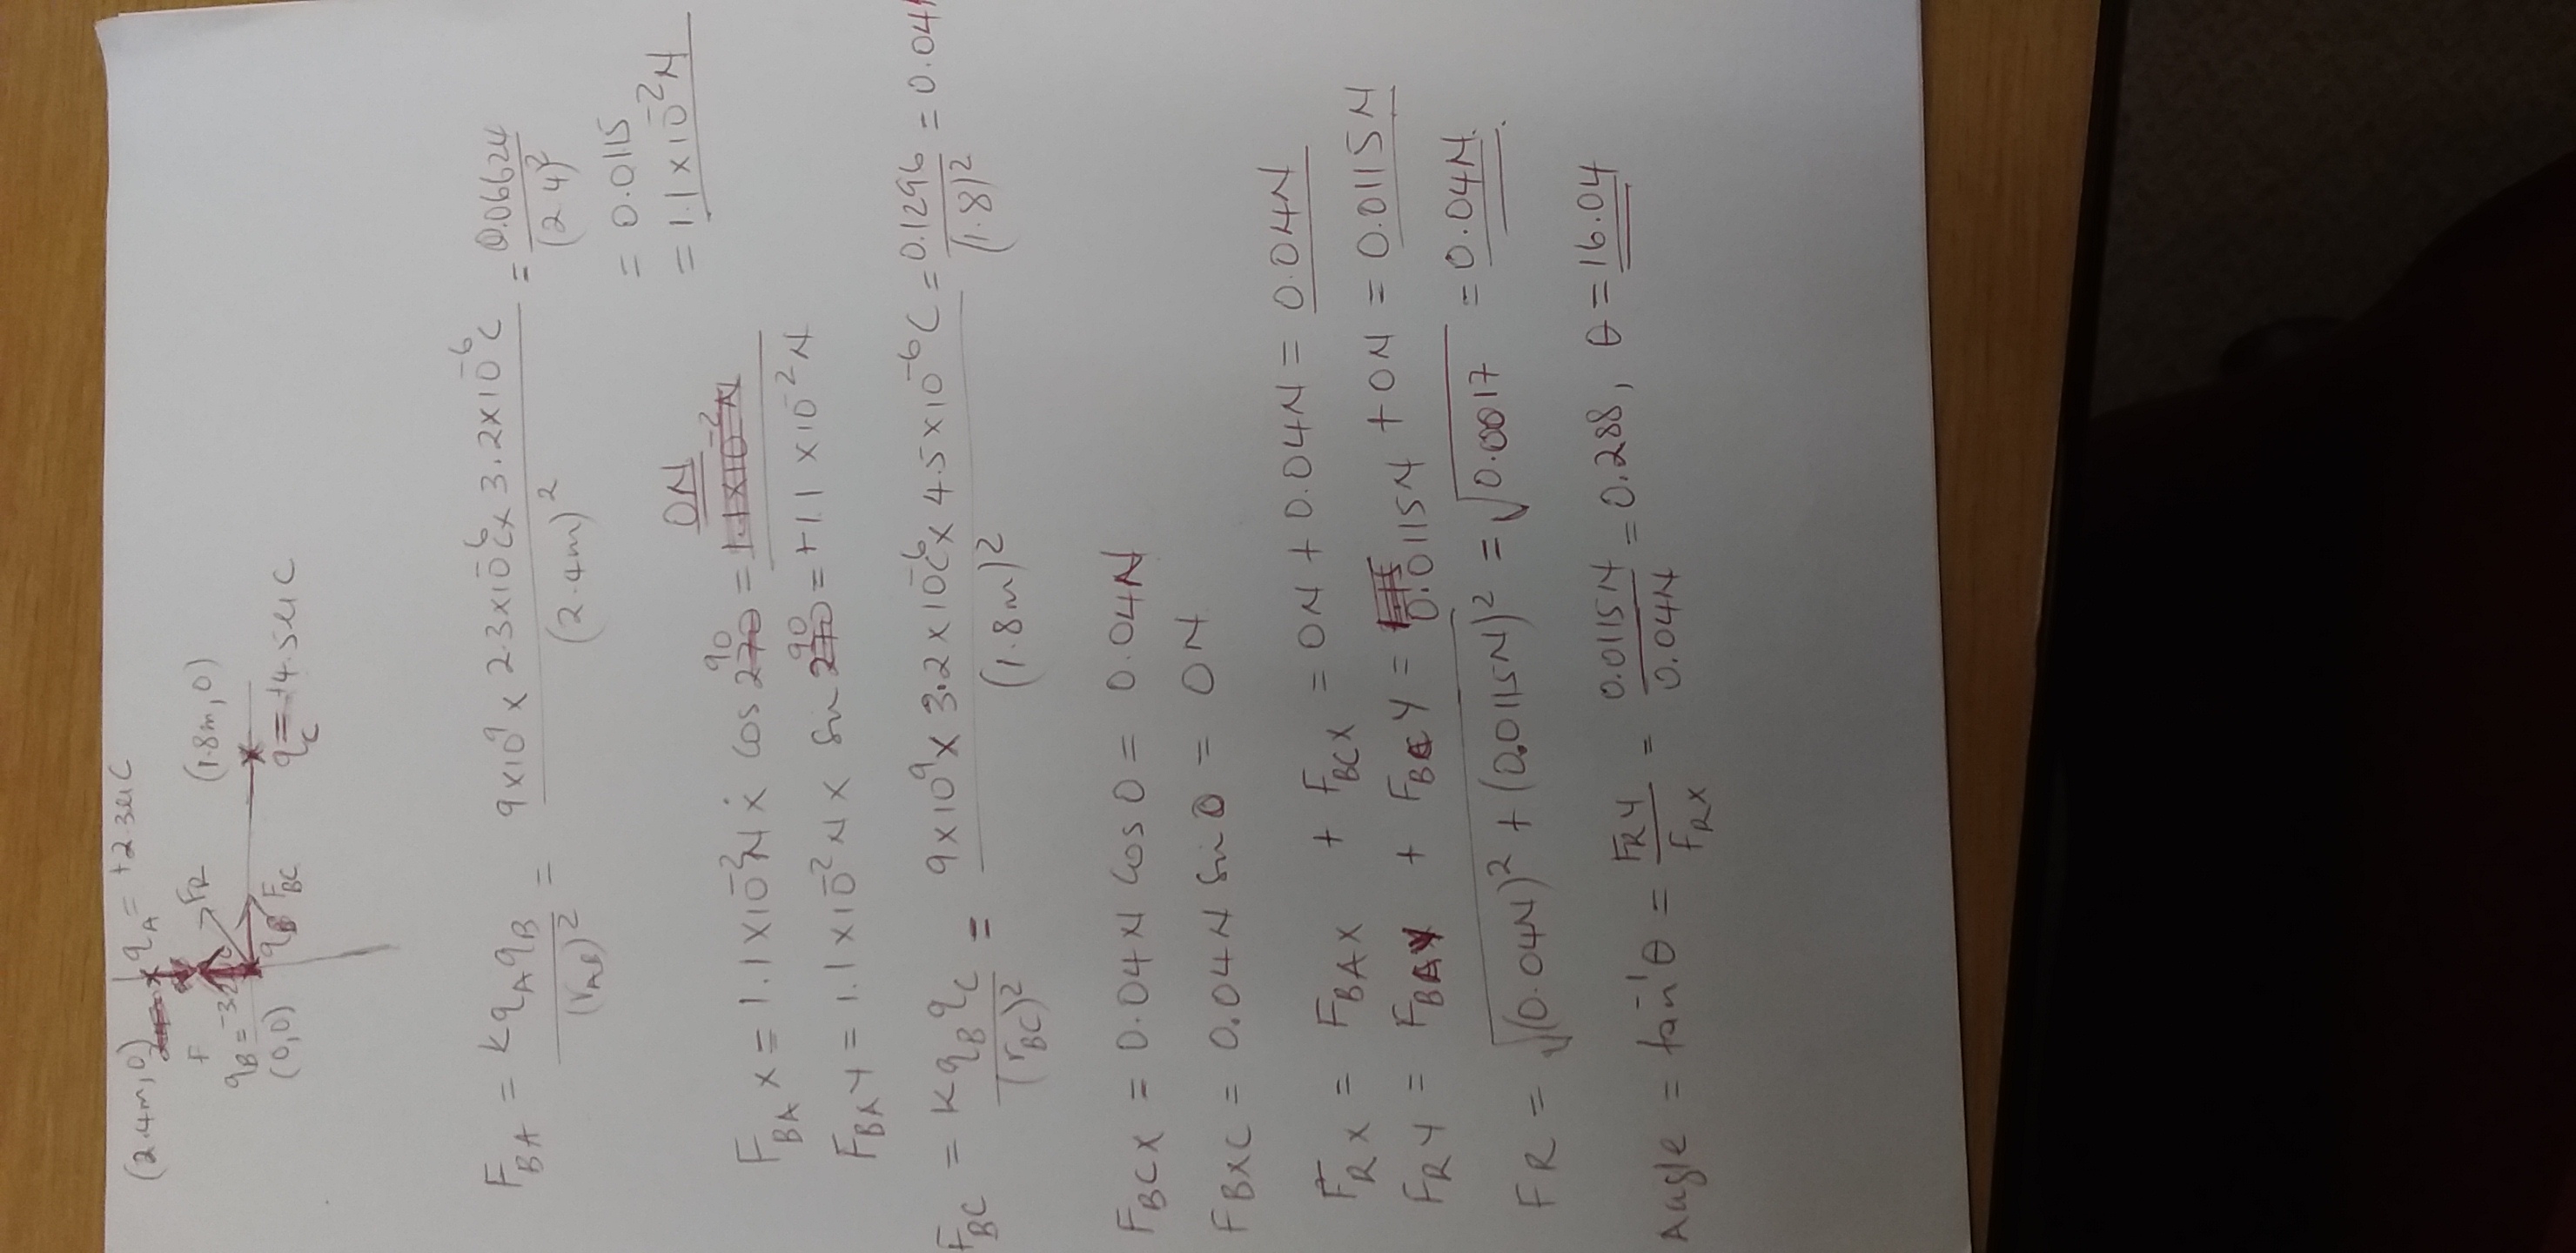 (2.4m,0) qA = +2.3μC
F FR (1.8m,0)
qB = -3.2
(0,0) qB FBC qC = +4.5μC
FBA = KqAqB/(rAB)² = 9x10⁹ x 2.3x10⁻⁶C x 3.2x10⁻⁶C/(2.4m)² = 0.06624/(2.4)²
= 0.0115
= 1.1x10⁻²N
0N
FBAx = 1.1x10⁻²N x cos 90 =
FBAy = 1.1x10⁻²N x sin 90 = +1.1x10⁻²N
FBC = KqBqC/(rBC)² = 9x10⁹ x 3.2x10⁻⁶C x 4.5x10⁻⁶C/(1.8m)² = 0.1296/(1.8)² = 0.04
FBCX = 0.04N Cos 0 = 0.04N
FBXC = 0.04N Sin 0 = 0N
FRX = FBAX + FBCX = 0N + 0.04N = 0.04N
FRY = FBAY + FBCY = 0.0115N + 0N = 0.0115N
FR = √(0.04N)² + (0.0115N)² = √0.0017 = 0.04N.
Angle = tan⁻¹θ = FRY/FRX = 0.0115N/0.04N = 0.288, θ = 16.04